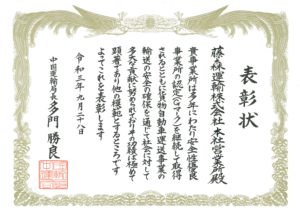 表彰状
藤森運輸株式会社本社営業所殿
貴事業所は多年にわたり安全性優良
事業所の認定(Gマーク)を継続して取得
されるとともに貨物自動車運送事業の
輸送の安全の確保を通じて社会に対して
多大な貢献に努められておりその功績は極めて
顕著であり他の模範とするところです
よってこれを表彰します
令和三年九月二十八日
中国運輸局長 多門勝良